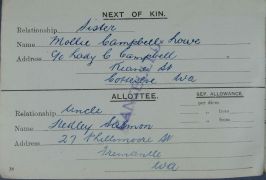 NEXT OF KIN.
Relationship Sister
Name Mollie Campbell Lowe
Address c/o Lady C Campbell
St
Cottesloe WA
ALLOTTEE.
SEP. ALLOWANCE.
per diem
Relationship Uncle
from
Name Hedley
Address 27 Phillimore St
Fremantle
WA